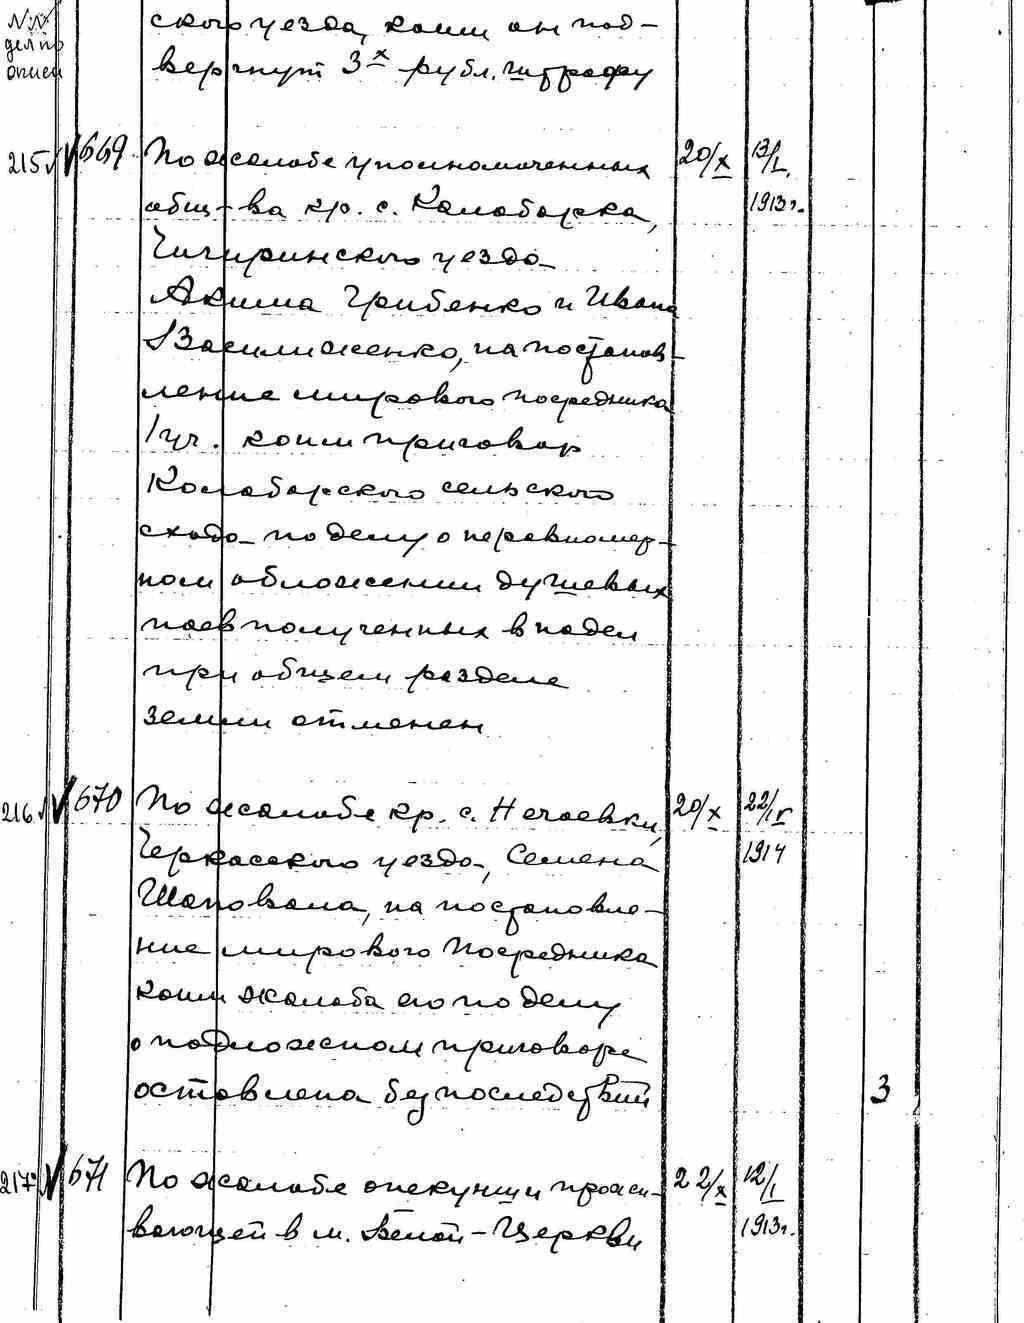 NN
дел по
описи
ского уезда, коим он под-
вергнут 3х рубл. штрафу
215 √ √ 669 По жалобе уполномоченных 20/X 13/I.
общ-ва кр. с. Калаборка, 1913 г.
Чигиринского уезда
Акима Грибенко и Ивана
Василиженко, на постанов-
ление мирового посредника
1 уч. коим приговор
Калаборского сельского
схода по делу о неравномер-
ном обложении душевых
паев полученных в надел
при общем разделе
земли отменен
216 √ √ 670 По жалобе кр. с. Нечаевки, 20/X 22/IV
Черкасского уезда, Семена 1914
Шаповала, на постановле-
ние мирового Посредника
коим жалоба его по делу
о подложном приговоре
оставлена без последствий 3
217 √ 671 По жалобе опекунши прожи- 22/X 12/I
вающей в м. Белой-Церкви 1913 г.